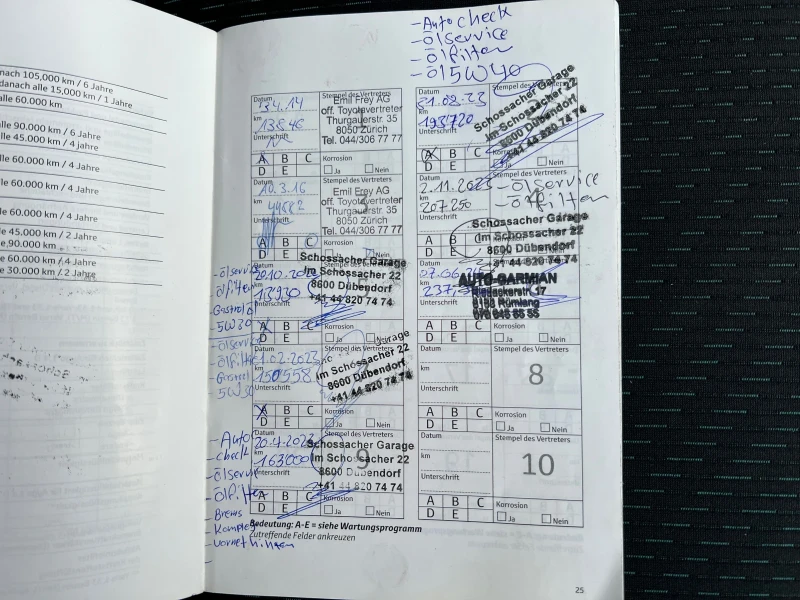 nach 105,000 km / 6 Jahre
danach alle 15,000 km / 1 Jahre
alle 60.000 km
alle 90.000 km / 6 Jahre
alle 45.000 km / 4 jahre
alle 60.000 km / 4 Jahre
alle 60.000 km / 4 Jahre
alle 45.000 km / 2 Jahre
90.000km
60.000 km / 4 Jahre
30.000 km / 2 Jahre
-Autocheck
-Ölservice
-Ölfilter
-Öl 5W40
Datum
km
13846
Unterschrift
Stempel des Vertreters
Emil Frey AG
off. Toyotavertreter
Thurgauerstr. 35
8050 Zürich
Tel. 044/306 77 77
A B C
D E
Korrosion
Ja Nein
Datum
10.3.16
km
Unterschrift
Stempel des Vertreters
Emil Frey AG
off. Toyotavertreter
Thurgauerstr. 35
8050 Zürich
Tel. 044/306 77 77
A B C
D E
Korrosion
Ja Nein
-Ölservice
-Ölfilter
5W30
Schossacher Garage
Im Schossacher 22
8600 Dübendorf
+41 44 820 74 74
A B C
D E
Korrosion
Ja Nein
-Ölservice
-Ölfilter
-5W30
Datum
1.02.2023
km
150558
Unterschrift
Stempel des Vertreters
Im Schossacher 22
8600 Dübendorf
+41 44 820 74 74
A B C
D E
Korrosion
Ja Nein
-Auto
check
-Ölservice
-Ölfilter
-Brems
Komplet
vornet hinten
Datum
km
163000
Unterschrift
Stempel des Vertreters
9
Schossacher Garage
Im Schossacher 22
8600 Dübendorf
+41 44 820 74 74
A B C
D E
Korrosion
Ja Nein
Datum
31.08.23
km
193720
Unterschrift
Stempel des Vertreters
Schossacher Garage
Im Schossacher 22
8600 Dübendorf
+41 44 820 74 74
A B C
D E
Korrosion
Ja Nein
2.11.2023
km
207250
Unterschrift
-Ölservice
-Ölfilter
Schossacher Garage
Im Schossacher 22
8600 Dübendorf
+41 44 820 74 74
A B
D E
km
Unterschrift
AUTO-GARMIAN
Riedackerstr. 17
8153 Rümlang
A B C
D E
Korrosion
Ja Nein
Datum
km
Unterschrift
Stempel des Vertreters
8
A B C
D E
Korrosion
Ja Nein
Datum
km
Unterschrift
Stempel des Vertreters
10
A B C
D E
Korrosion
Ja Nein
Bedeutung: A-E = siehe Wartungsprogramm
Zutreffende Felder ankreuzen
25